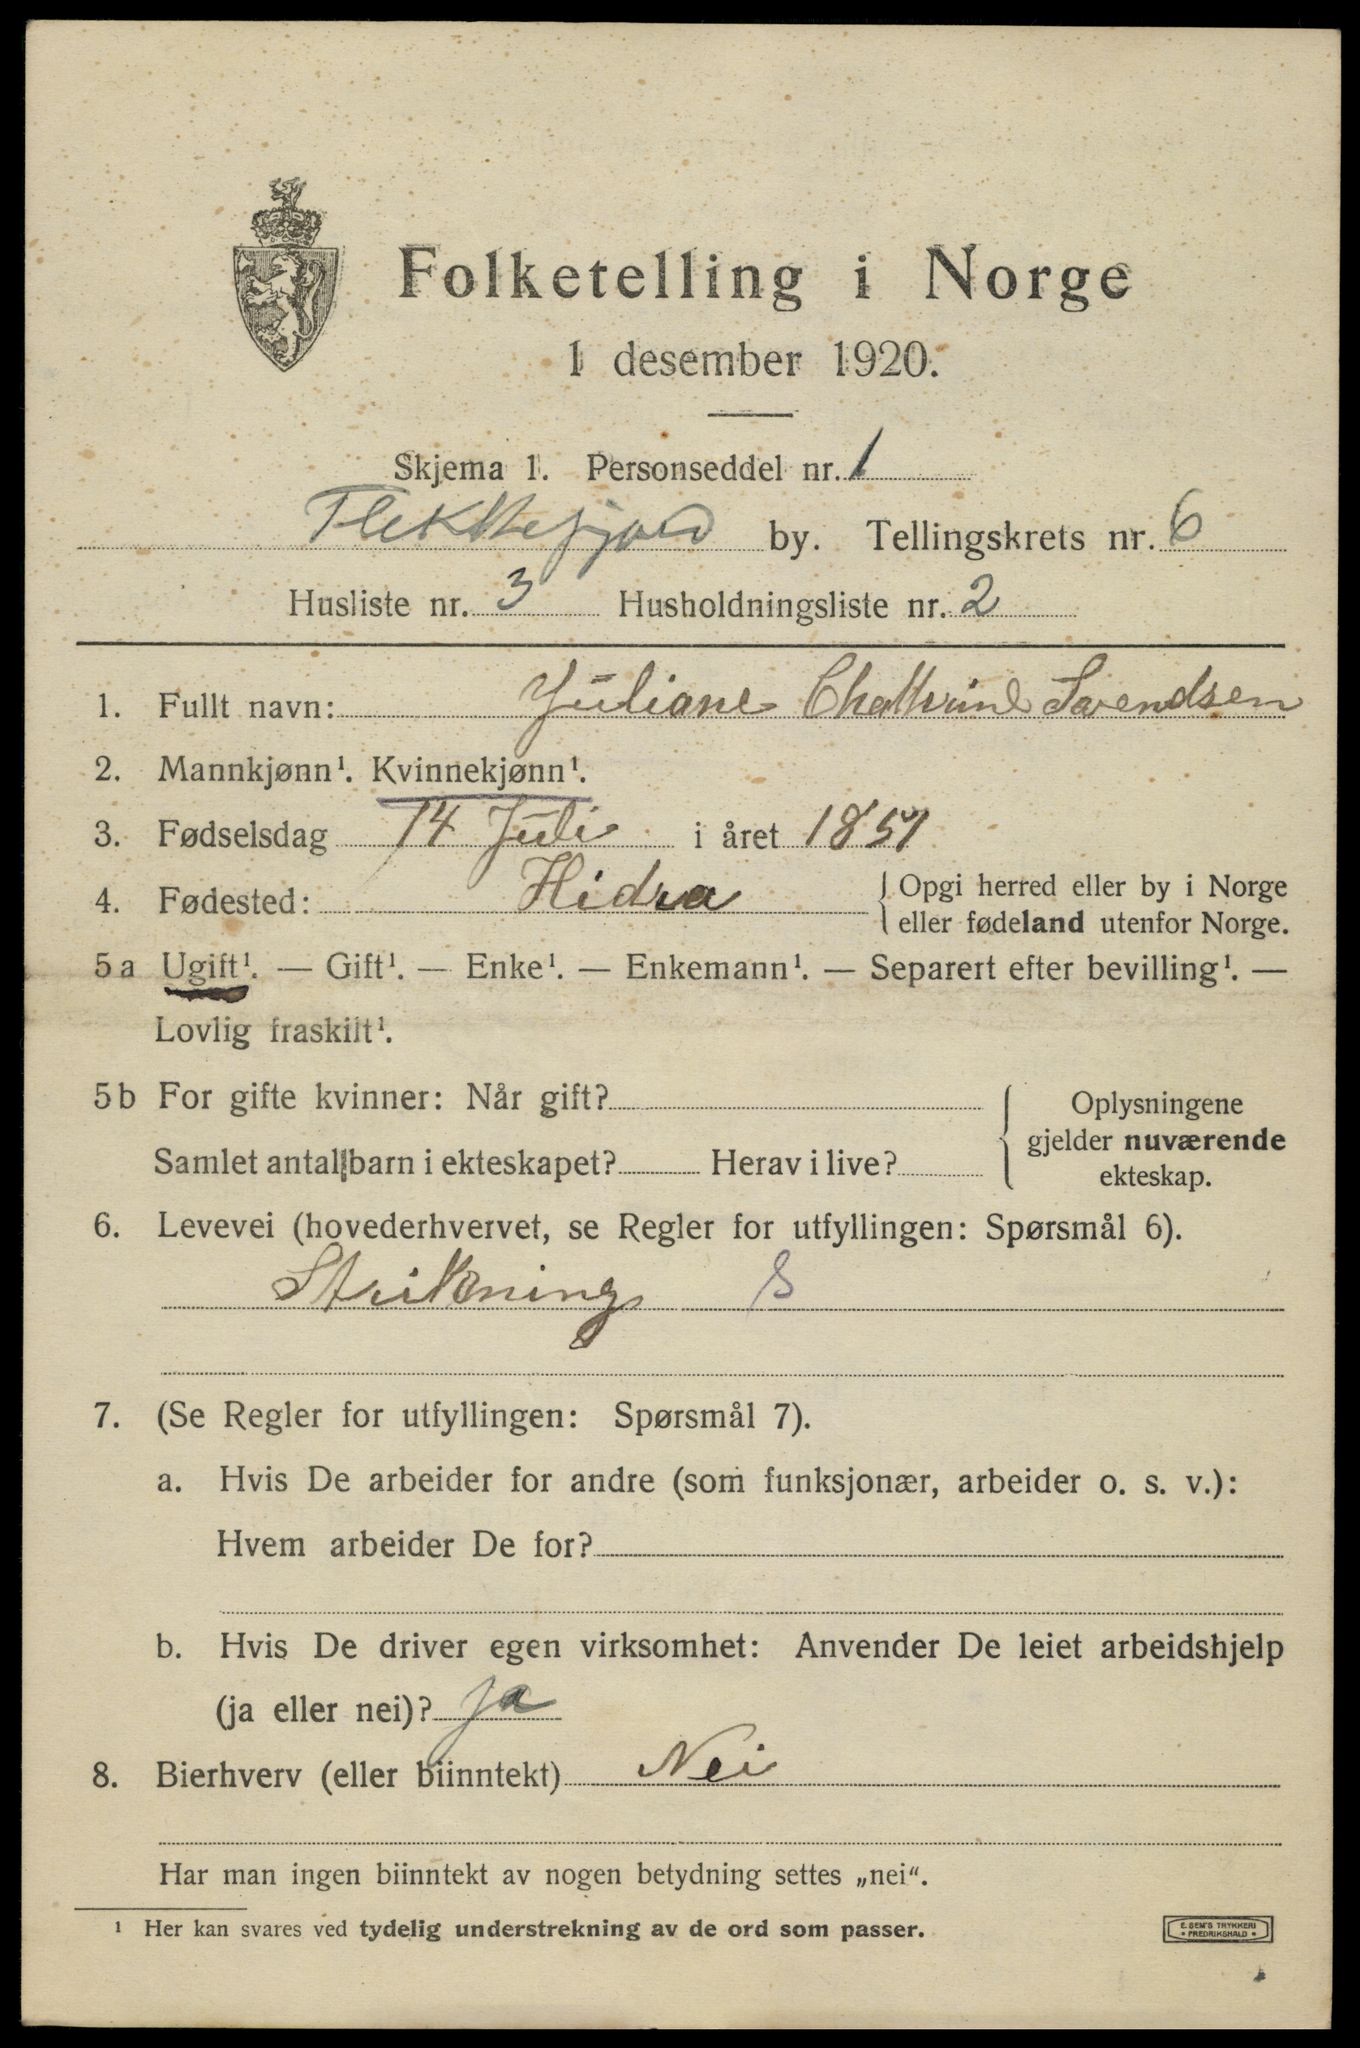 Folketelling i Norge
1 desember 1920.
Skjema 1. Personseddel nr. 1
Flekkefjord by. Tellingskrets nr. 6
Husliste nr. 3 Husholdningsliste nr. 2
1. Fullt navn: Juliane Chathrine Svendsen
2. Mannkjønn¹. Kvinnekjønn¹.
3. Fødselsdag 14 Juli i året 1851
4. Fødested: Hidra { Opgi herred eller by i Norge
eller fødeland utenfor Norge.
5 a Ugift¹. — Gift¹. — Enke¹. — Enkemann¹. — Separert efter bevilling¹. —
Lovlig fraskilt¹.
5 b For gifte kvinner: Når gift? { Oplysningene
gjelder nuværende
Samlet antal barn i ekteskapet? Herav i live?
ekteskap.
6. Levevei (hovederhvervet, se Regler for utfyllingen: Spørsmål 6).
Strikning S
7. (Se Regler for utfyllingen: Spørsmål 7).
a. Hvis De arbeider for andre (som funksjonær, arbeider o. s. v.):
Hvem arbeider De for?
b. Hvis De driver egen virksomhet: Anvender De leiet arbeidshjelp
(ja eller nei)? ja
8. Bierhverv (eller biinntekt) Nei
Har man ingen biinntekt av nogen betydning settes „nei“.
¹ Her kan svares ved tydelig understrekning av de ord som passer.
E. SEM'S TRYKKERI
• FREDRIKSHALD •